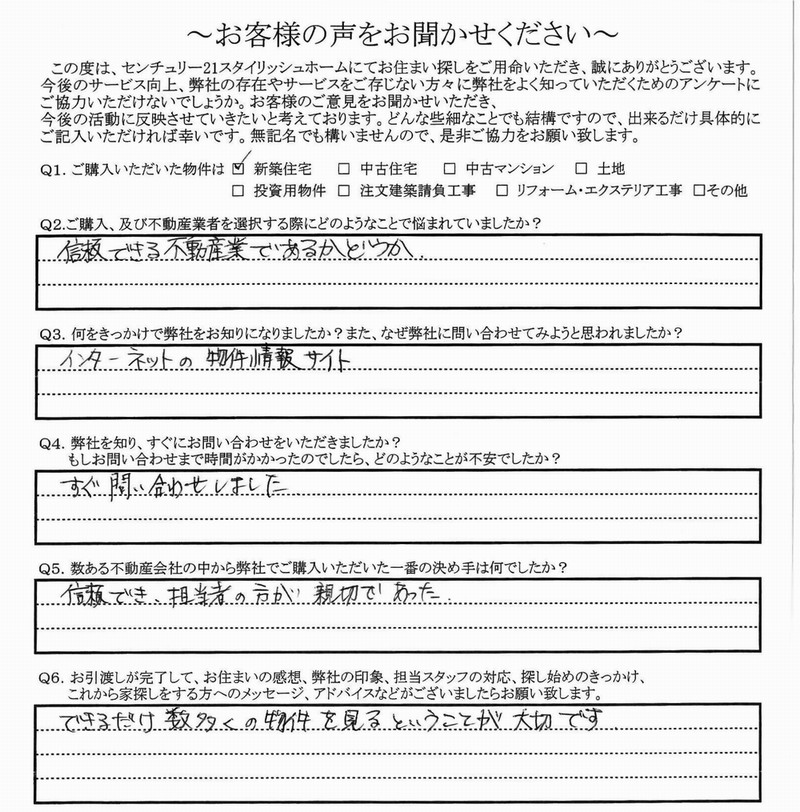 ～お客様の声をお聞かせください～
この度は、センチュリー21スタイリッシュホームにてお住まい探しをご用命いただき、誠にありがとうございます。
今後のサービス向上、弊社の存在やサービスをご存じない方々に弊社をよく知っていただくためのアンケートに
ご協力いただけないでしょうか。お客様のご意見をお聞かせいただき、
今後の活動に反映させていきたいと考えております。どんな些細なことでも結構ですので、出来るだけ具体的に
ご記入いただければ幸いです。無記名でも構いませんので、是非ご協力をお願い致します。
Q1. ご購入いただいた物件は ☑ 新築住宅 □ 中古住宅 □ 中古マンション □ 土地
□ 投資用物件 □ 注文建築請負工事 □ リフォーム・エクステリア工事 □その他
Q2.ご購入、及び不動産業者を選択する際にどのようなことで悩まれていましたか？
信頼できる不動産業であるかどうか.
Q3. 何をきっかけで弊社をお知りになりましたか？また、なぜ弊社に問い合わせてみようと思われましたか？
インターネットの物件情報サイト
Q4. 弊社を知り、すぐにお問い合わせをいただきましたか？
もしお問い合わせまで時間がかかったのでしたら、どのようなことが不安でしたか？
すぐ問い合わせしました
Q5. 数ある不動産会社の中から弊社でご購入いただいた一番の決め手は何でしたか？
信頼でき、担当者の方が親切であった.
Q6. お引渡しが完了して、お住まいの感想、弊社の印象、担当スタッフの対応、探し始めのきっかけ、
これから家探しをする方へのメッセージ、アドバイスなどがございましたらお願い致します。
できるだけ数多くの物件を見るということが大切です